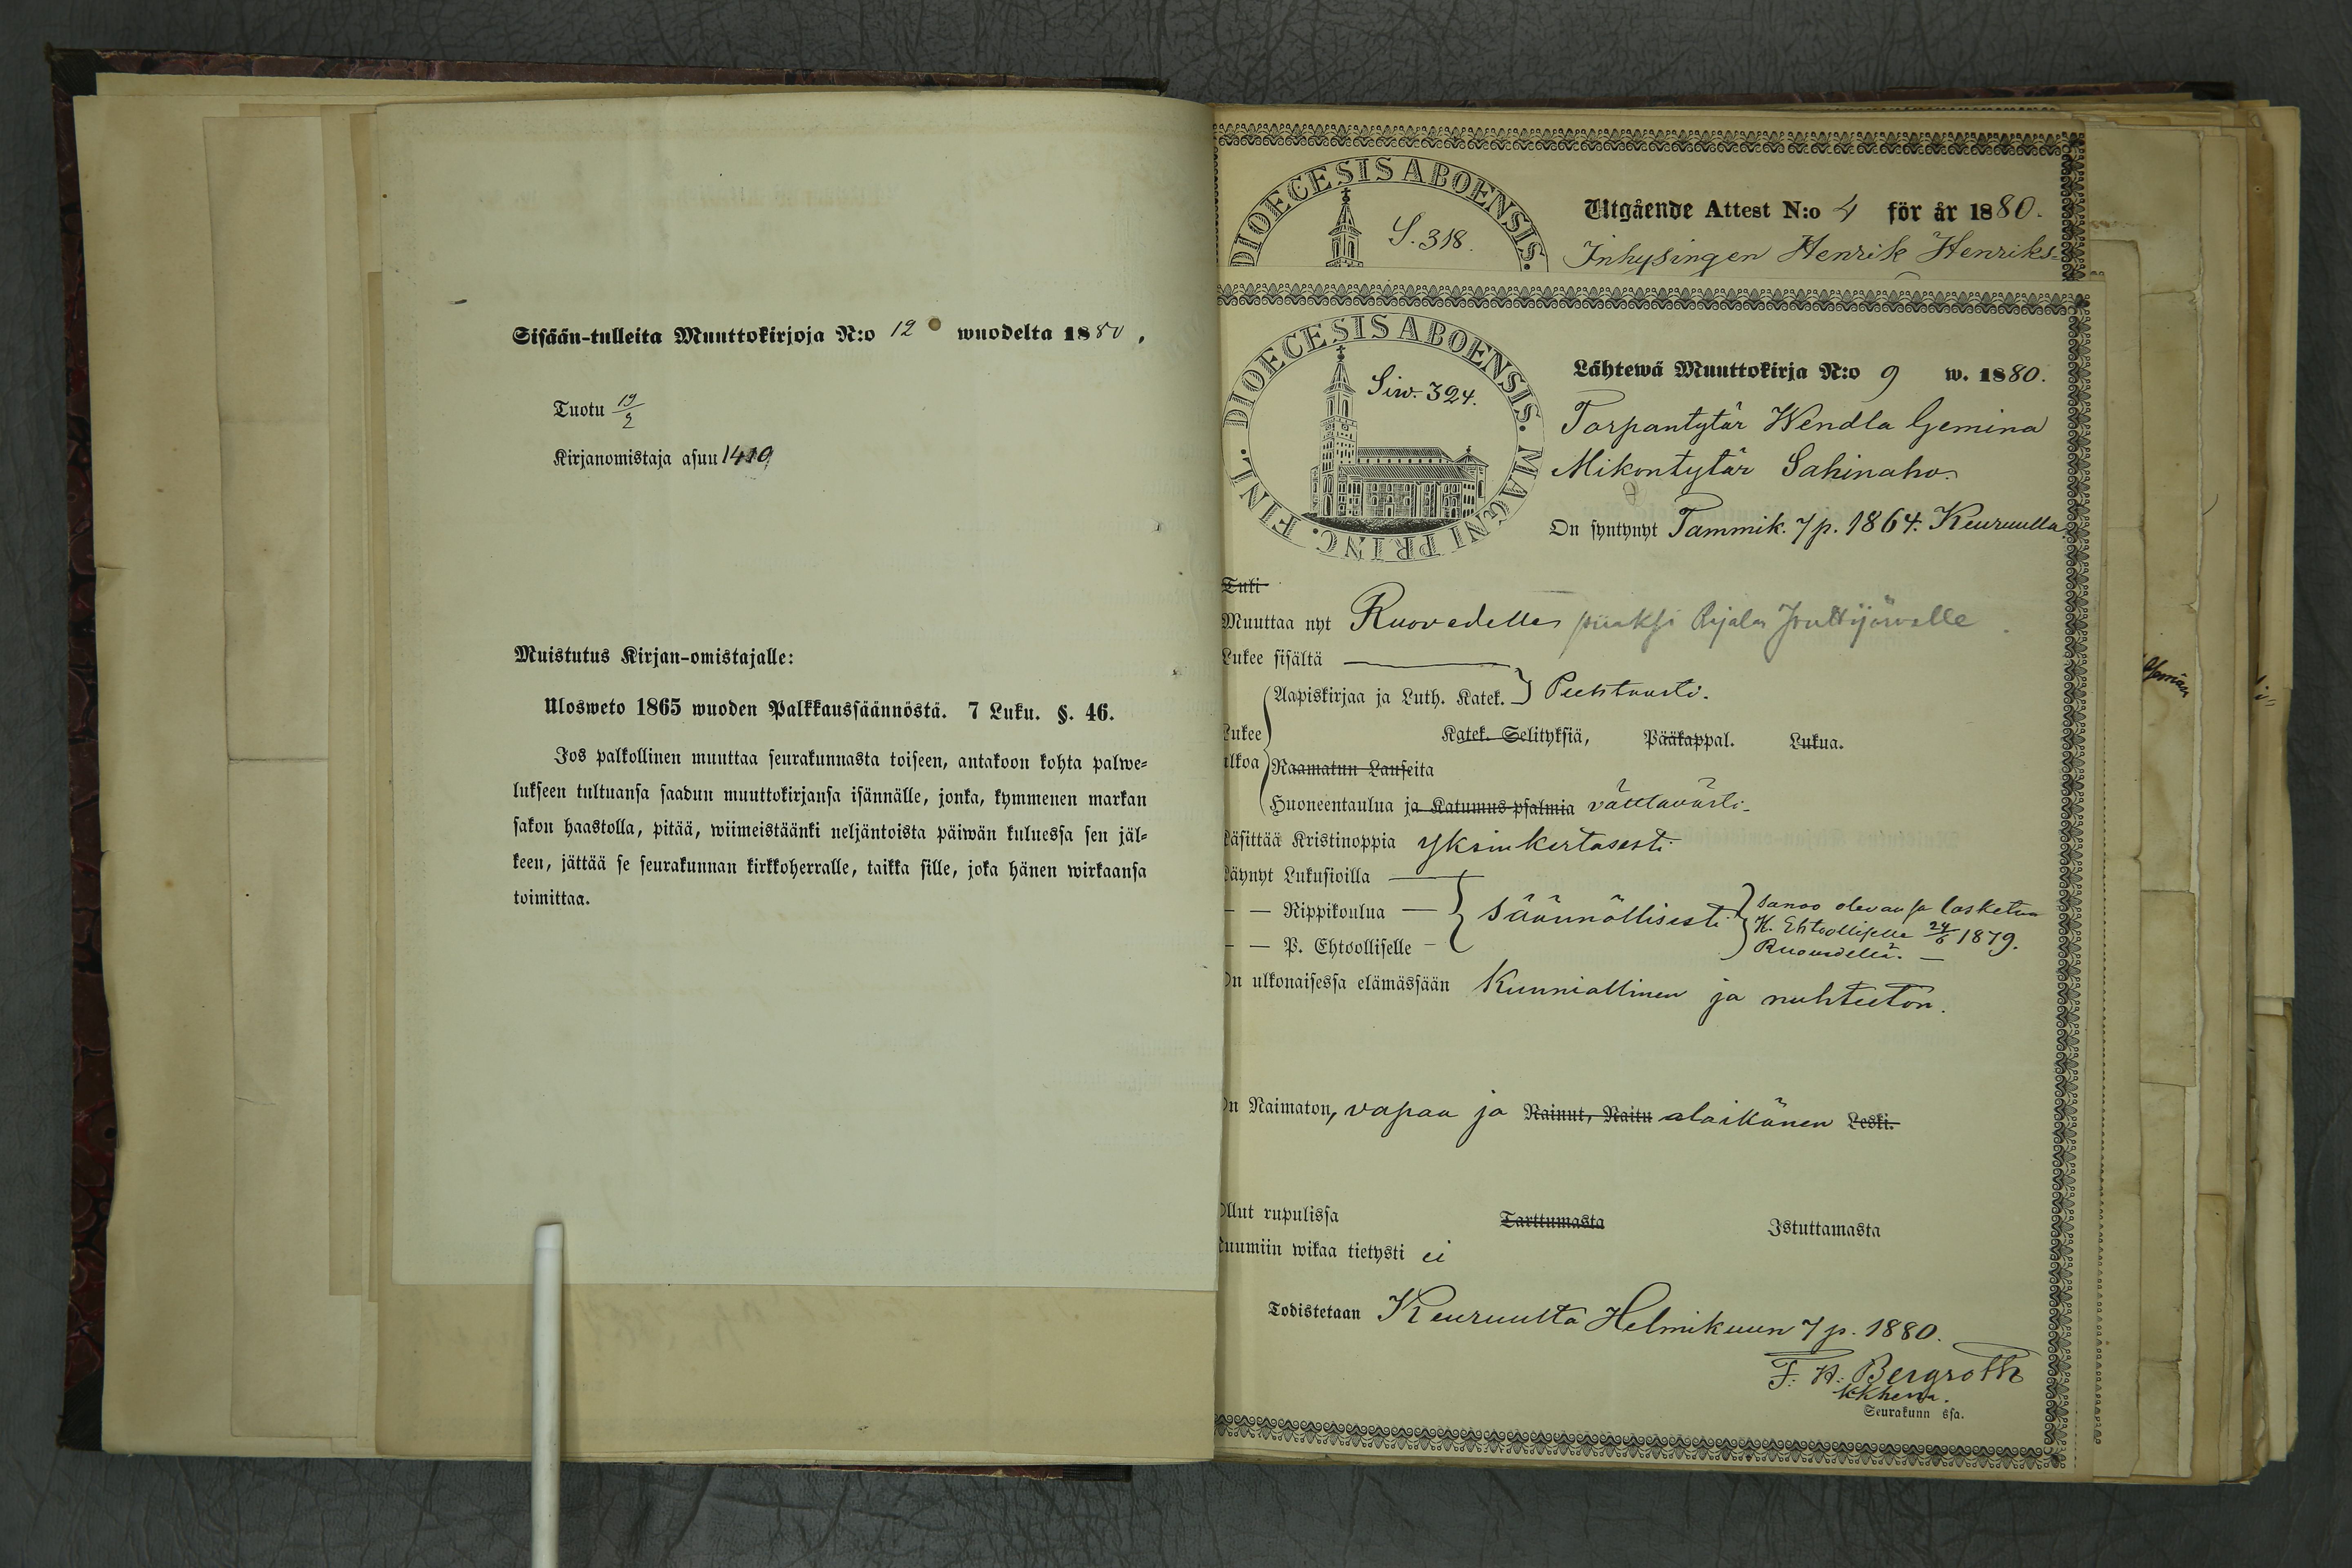 Sisään-tulleita Muuttokirjoja N:o 12 wuodelta 1880.
Tuotu 19/2
Kirjanomistaja asuu 1410
Muistutus Kirjan-omistajalle:
Ulosweto 1865 wuoden Palkkaussäännöstä. 7 Luku. §. 46.
Jos palkollinen muuttaa seurakunnasta toiseen, antakoon kohta palwe-
lukseen tultuansa saadun muuttokirjansa isännälle, jonka, kymmenen markan
sakon haastolla, pitää, wiimeistäänki neljäntoista päiwän kuluessa sen jäl-
keen, jättää se seurakunnan kirkkoherralle, taikka sille, joka hänen wirkaansa
toimittaa.
DIOECESIS ABOENSIS.
S. 318.
Utgående Attest N:o 4 för år 1880.
Inhysingen Henrik Henriks-
DIOECESIS ABOENSIS. MAGNI PRINC. FINL.
Siw. 324.
Lähtewä Muuttokirja N:o 9 w. 1880.
Torpantytär Wendla Gemina
Mikontytär Sahinaho.
On syntynyt Tammik. 7 p. 1864. Keuruulla.
Tuli
Muuttaa nyt Ruovedelle piiaksi
Lukee sisältä
Aapiskirjaa ja Luth. Katek. } Puhtaasti.
Lukee
ulkoa
Katek. Selityksiä, Pääkappal. Lukua.
Raamatun Lauseita
Huoneentaulua ja Katumus-psalmia välttävästi.
Käsittää Kristinoppia yksinkertasesti
Käynyt Lukusioilla
— — Rippikoulua — } säännöllisesti } sanoo olevansa lasketun
H. Ehtoolliselle 24/6 1879.
— — P. Ehtoolliselle – Ruovedellä. —
On ulkonaisessa elämässään Kunniallinen ja nuhteeton.
On Naimaton, vapaa ja Nainut, Naitu alaikänen Leski.
Ollut rupulissa Tarttumasta Istuttamasta
Ruumiin wikaa tietysti ei
Todistetaan Keuruulta Helmikuun 7 p. 1880.
F. H. Bergroth
kkherra.
Seurakunn ssa.